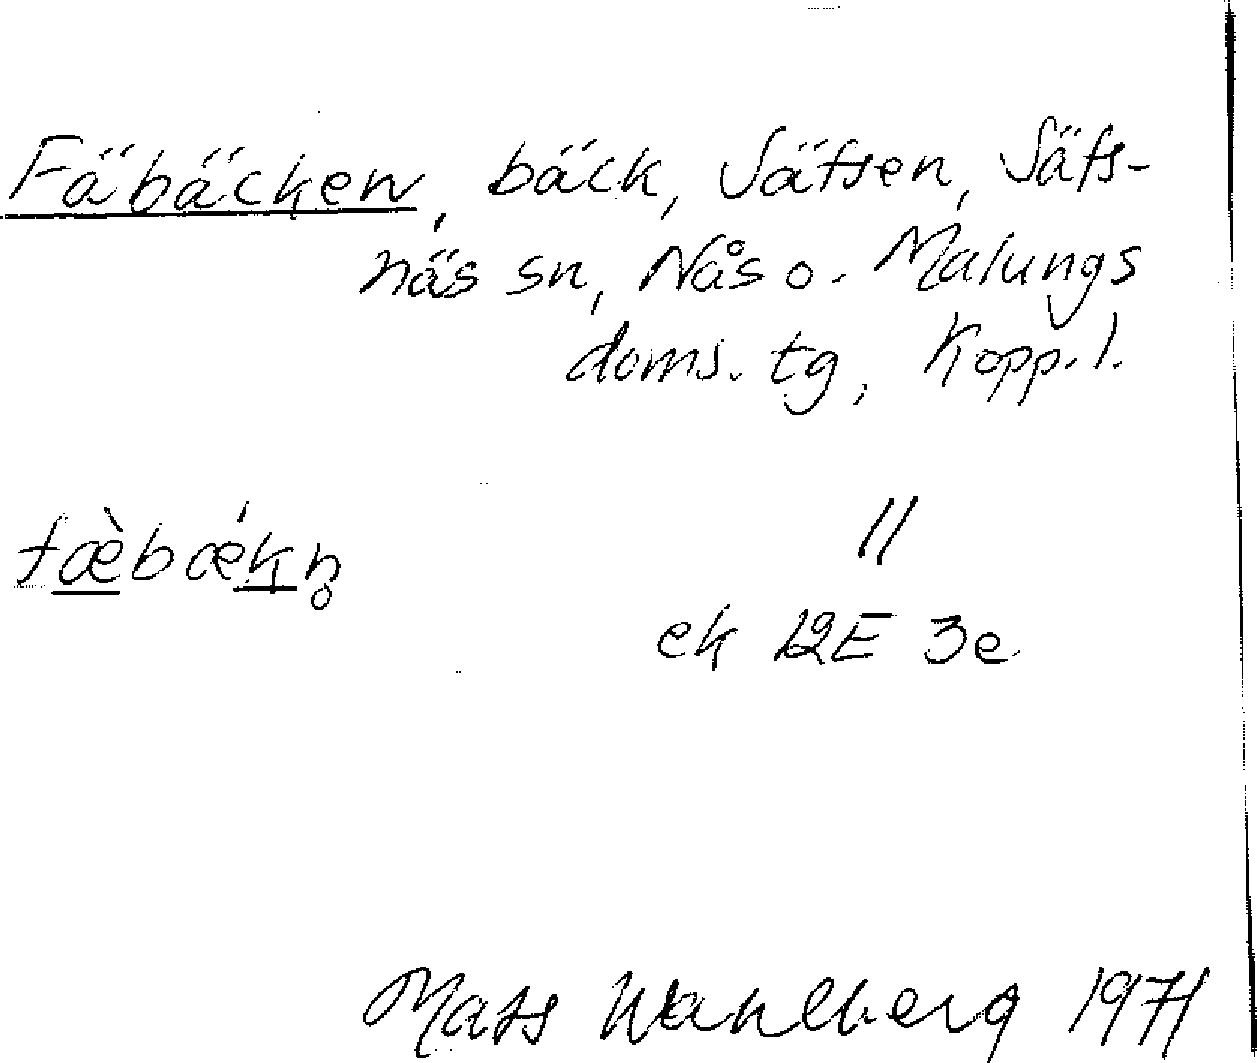 Fäbäcken, bäck, Säfsen, Säfs-
näs sn, Nås o. Malungs
doms. tg, Kopp. l.
fæ̀bǽkn̥ //
ek 12E 3e
Mats Wahlberg 1971